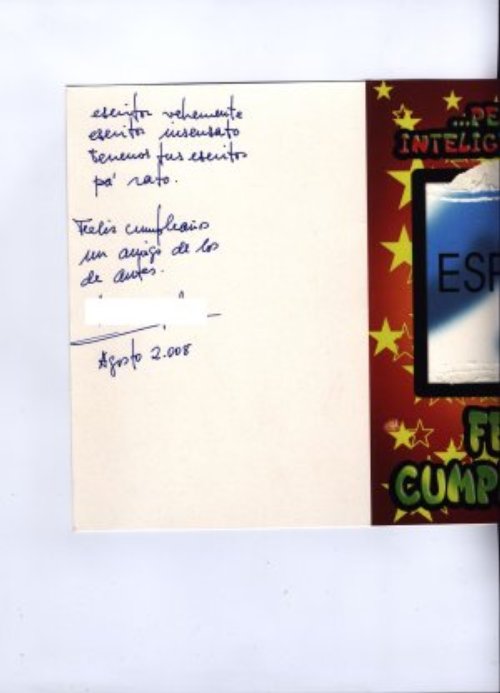 escritor vehemente
escritor insensato
tenemos tus escritos
pa' rato.
Feliz cumpleaños
un amigo de los
de antes.
Agosto 2.008
...PE
INTELIG
ESP
FE
CUMP